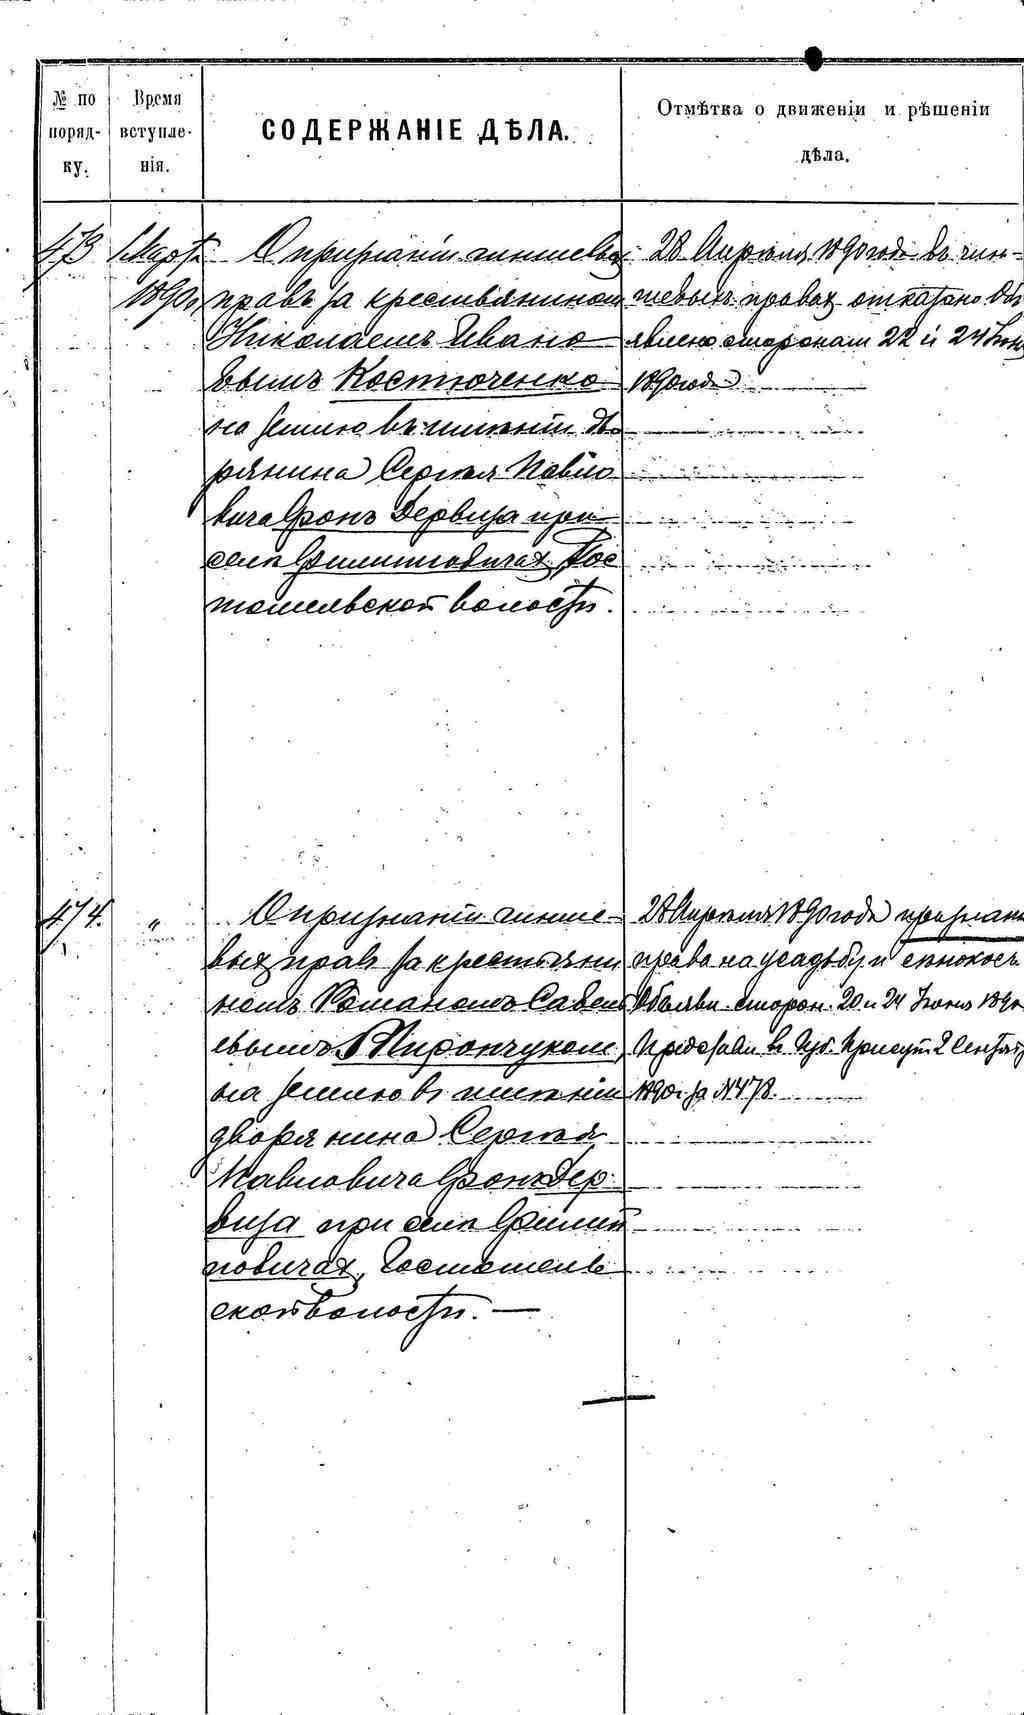 № по поряд- ку.
Время вступле- нія.
СОДЕРЖАНІЕ ДѢЛА.
Отмѣтка о движеніи и рѣшеніи
дѣла.
473
Марта
1890 г
О признаніи чиншевых
правъ за крестьянином
Николаемъ Ивано
вымъ Костюченко
на землю въ имѣніи дво
рянина Сергѣя Павло
вича Фонъ Дервиза при
селѣ Филипповичах, Гос
томельской волости.
28 Апрѣля 1890 года въ чин-
шевыхъ правах отказано Объ
явлено сторонам 22 и 24 Іюня
1890 года
474.
"
О признаніи чинше-
вых правъ за крестьяни
номъ Романомъ Савель
евымъ Мирончуком
на землю въ имѣніи
дворянина Сергѣя
Павловича Фонъ Дер
виза при селѣ Филип
повичах, Гостомель
ской волости. —
28 Апрѣля 1890 года признаны
права на усадьбу и сѣнокосъ
Объявл. сторон. 20 и 24 Іюня 1890
в Губ. Присут. 2 Сентяб
1890 г за № 478.